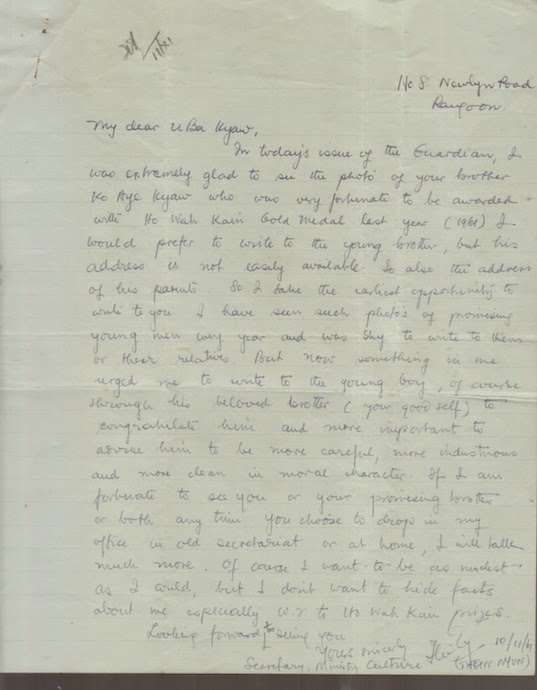 11/XI
Newlyn Road
Rangoon
My dear U Ba Kyaw,
In today's issue of the Guardian, I
was extremely glad to see the photo of your brother
Ko Aye Kyaw who was very fortunate to be awarded
with Ho Wah Kain Gold Medal last year (1961) I
would prefer to write to the young brother, but his
address is not easily available. So also the address
of his parents So I take the earliest opportunity to
write to you I have seen such photo's of promising
young men every year and was shy to write to them
or their relatives. But now something in me
urged me to write to the young boy, of course
through his beloved brother (your good self) to
congratulate him and more important to
advise him to be more careful, more industrious
and more clean in moral character. If I am
fortunate to see you or your promising brother
or both any time you choose to drop in my
office in old secretariat or at home, I will talk
much more. Of course I want to be as modest
as I could, but I don't want to hide facts
about me especially w.r. to Ho Wah Kain prizes.
Looking forward to seeing you
Yours sincerely 10/11/61
Secretary, Ministry Culture